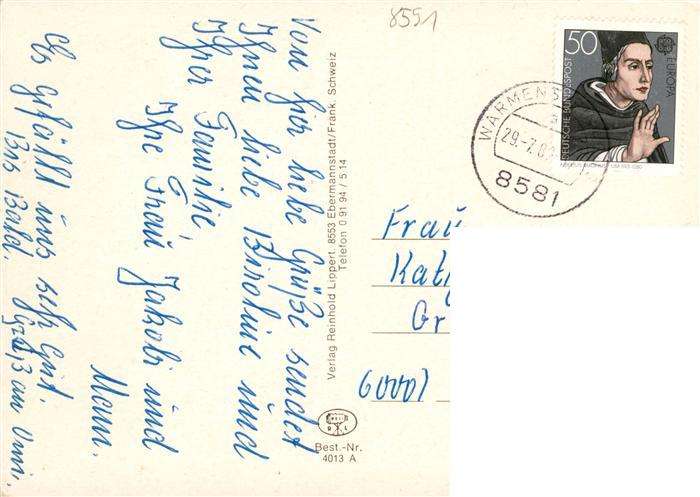 8591
Von hier liebe Grüße sendet
Ihnen liebe Karoline und
Ihrer Familie,
Ihre Frau Jakobi und
Mann.
Es gefällt uns sehr gut.
Bis Bald. Gruß an Omi.
Verlag Reinhold Lippert, 8553 Ebermannstadt/Fränk. Schweiz
Telefon 0 91 94 / 5 14
Best.-Nr.
4013 A
50
DEUTSCHE BUNDESPOST
EUROPA
WARMENS
29.-7.80
8581
Frau
6000